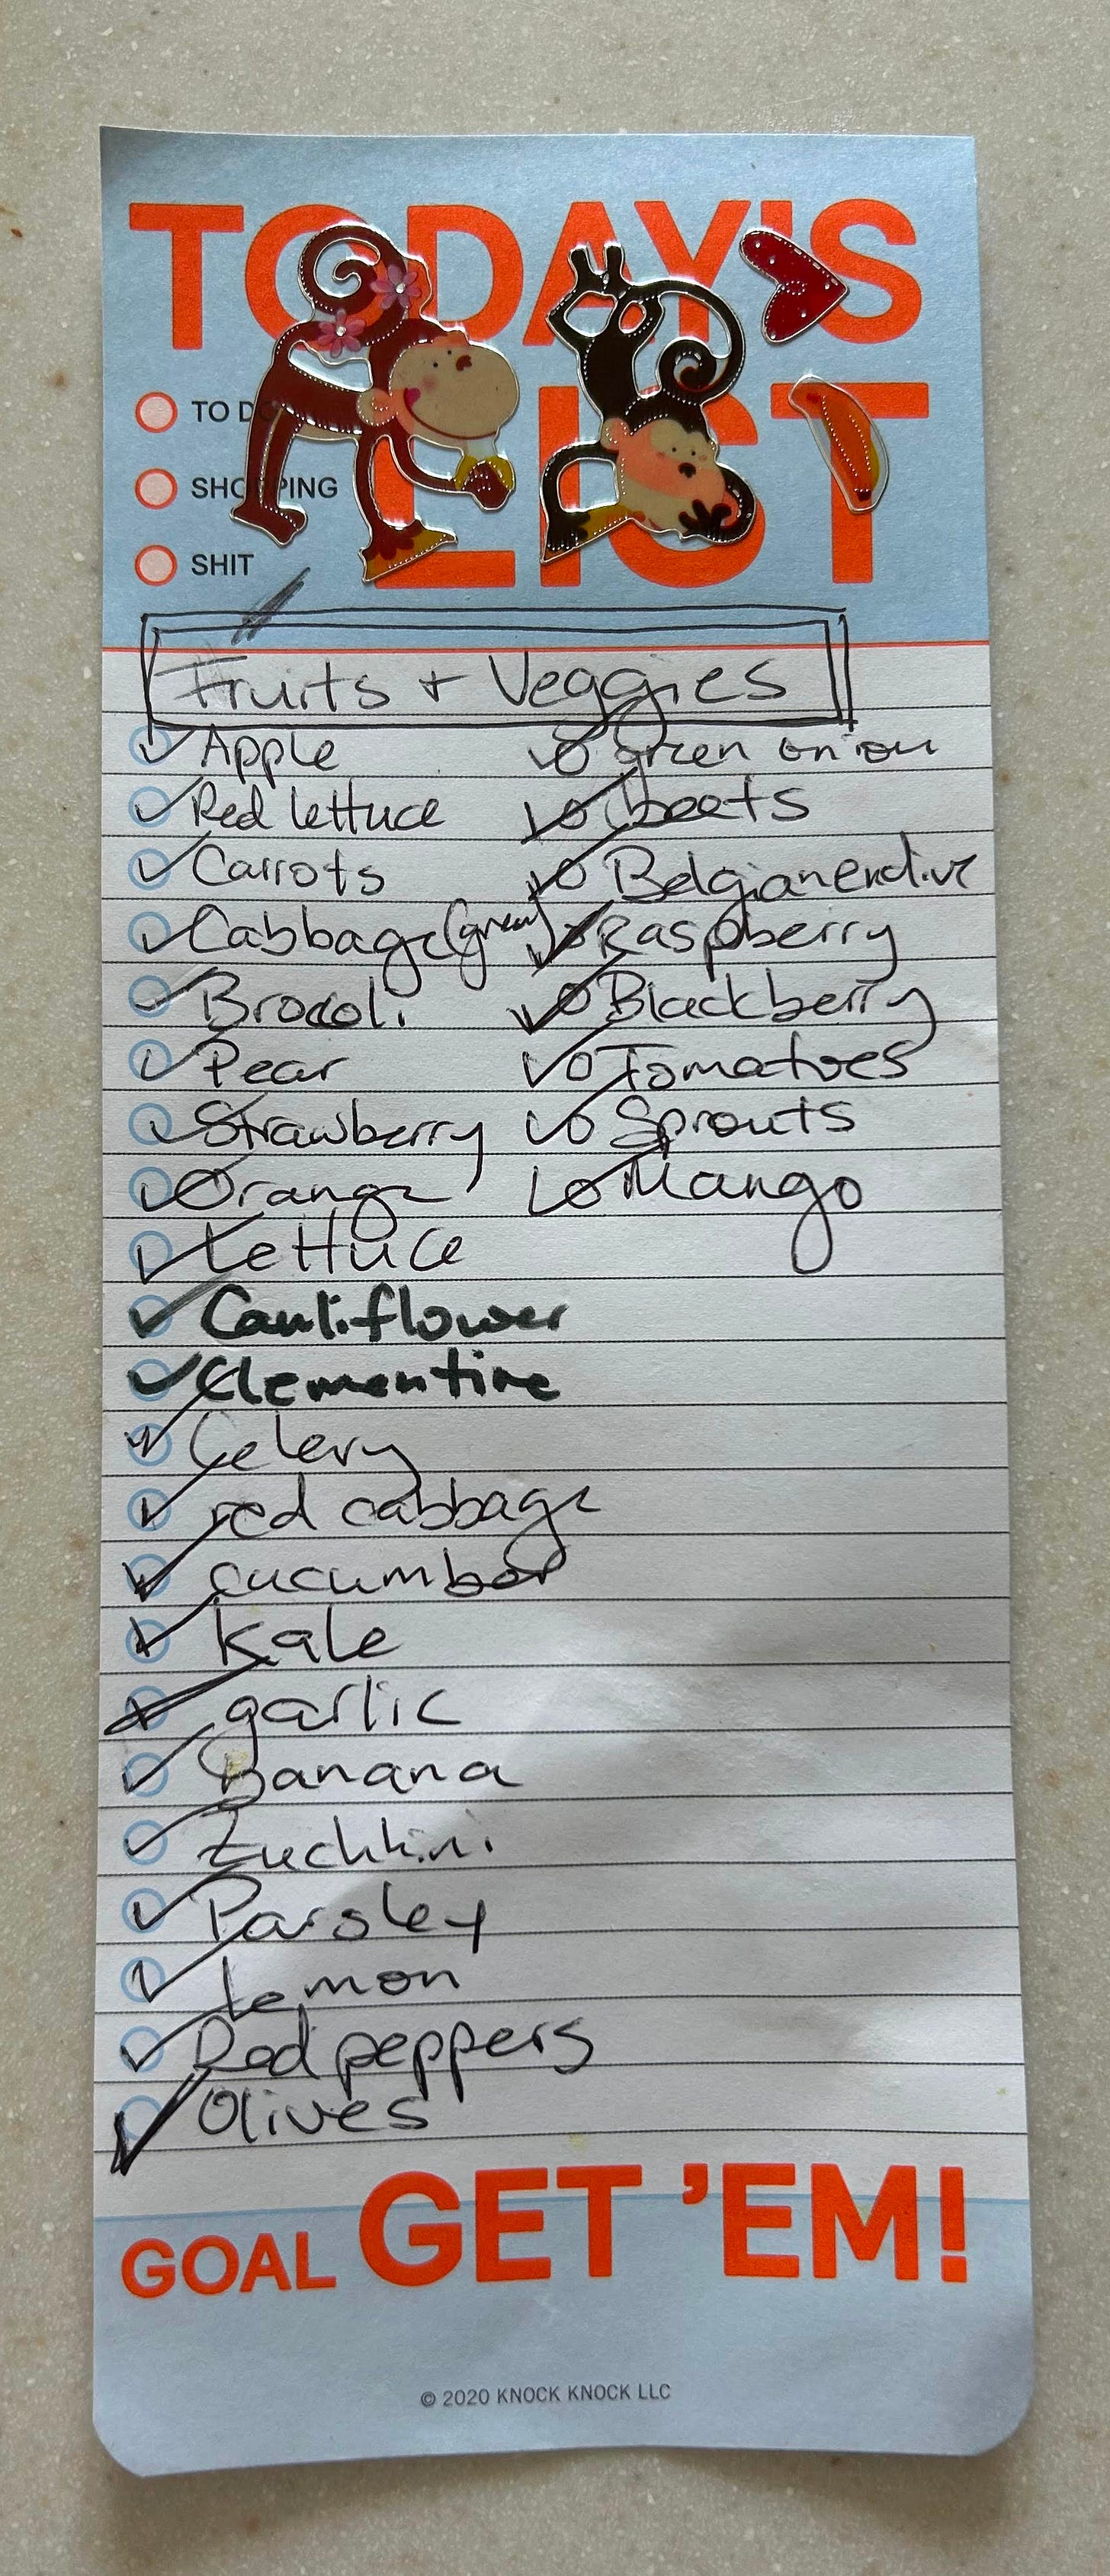 TODAY'S
LIST
TO DO
SHOPPING
SHIT
Fruits + Veggies
Apple
Red lettuce
Carrots
Cabbage (green)
Brocoli
Pear
Strawberry
Orange
Lettuce
Cauliflower
Clementine
Celery
red cabbage
cucumber
Kale
garlic
Banana
Zuchhini
Parsley
lemon
Red peppers
Olives
green onion
beets
Belgian endive
Raspberry
Blackberry
Tomatoes
Sprouts
Mango
GOAL GET 'EM!
© 2020 KNOCK KNOCK LLC